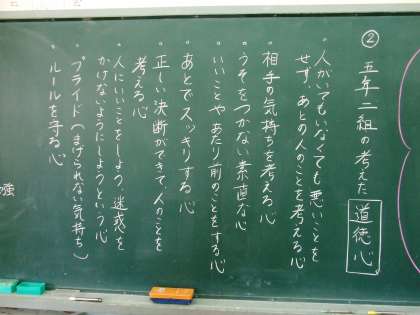 ② 五年二組の考えた 道徳心
・人がいてもいなくても悪いことを
せず、あとの人のことを考える心
・相手の気持ちを考える心
・うそをつかない素直な心
・いいことやあたり前のことをする心
・あとでスッキリする心
・正しい決断ができて、人のことを
考える心
・人にいいことをしよう、迷惑を
かけないようにしようという心
・プライド(まけられない気持ち)
・ルールを守る心
強